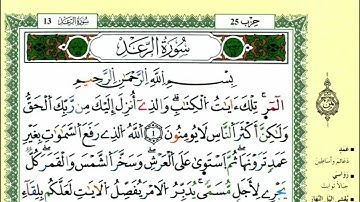 حزب 25
سورة الرعد 13
سُورَةُ الرَّعْدِ
بِسْمِ اللَّهِ الرَّحْمَٰنِ الرَّحِيمِ
أَلَٓمِّٓرۖ تِلْكَ ءَايَٰتُ الْكِتَٰبِۖ وَالذِے أُنزِلَ إِلَيْكَ مِن رَّبِّكَ الْحَقُّ
وَلَٰكِنَّ أَكْثَرَ النَّاسِ لَا يُومِنُونَۖ ١ اللَّهُ الذِے رَفَعَ السَّمَٰوَٰتِ بِغَيْرِ
عَمَدٖ تَرَوْنَهَاۖ ثُمَّ اسْتَوَىٰ عَلَى الْعَرْشِۖ وَسَخَّرَ الشَّمْسَ وَالْقَمَرَۖ كُلّٞ
يَجْرِے لِأَجَلٖ مُّسَمّىٗۖ يُدَبِّرُ الَامْرَ يُفَصِّلُ الَايَٰتِ لَعَلَّكُم بِلِقَآءِ
عمد
دعائم وأساطين
رواسي
جبالا ثوابت
يغشي الليل النهار